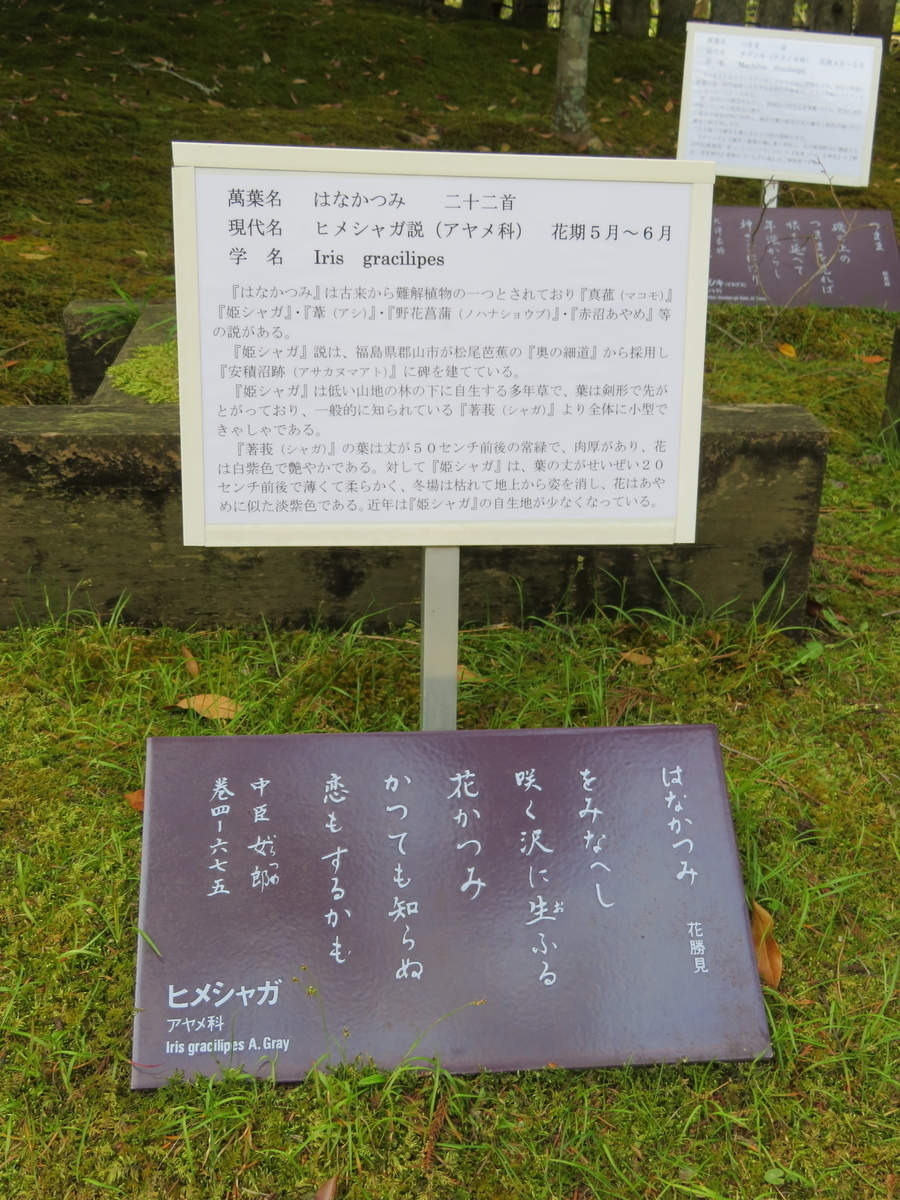 萬葉名　はなかつみ　二十二首
現代名　ヒメシャガ説（アヤメ科）　花期５月～６月
学　名　Iris gracilipes
『はなかつみ』は古来から難解植物の一つとされており『真菰（マコモ）』
『姫シャガ』・『葦（アシ）』・『野花菖蒲（ノハナショウブ）』・『赤沼あやめ』等
の説がある。
『姫シャガ』説は、福島県郡山市が松尾芭蕉の『奥の細道』から採用し
『安積沼跡（アサカヌマアト）』に碑を建てている。
『姫シャガ』は低い山地の林の下に自生する多年草で、葉は剣形で先が
とがっており、一般的に知られている『著莪（シャガ）』より全体に小型で
きゃしゃである。
『著莪（シャガ）』の葉は丈が５０センチ前後の常緑で、肉厚があり、花
は白紫色で艶やかである。対して『姫シャガ』は、葉の丈がせいぜい２０
センチ前後で薄くて柔らかく、冬場は枯れて地上から姿を消し、花はあや
めに似た淡紫色である。近年は『姫シャガ』の自生地が少なくなっている。
はなかつみ　花勝見
をみなへし
咲く沢に生ふる
お
花かつみ
かつても知らぬ
恋もするかも
中臣女郎
らつめ
巻四ー六七五
ヒメシャガ
アヤメ科
Iris gracilipes A. Gray
つまま
磯上の
つままを見れば
根を延へて
年深からし